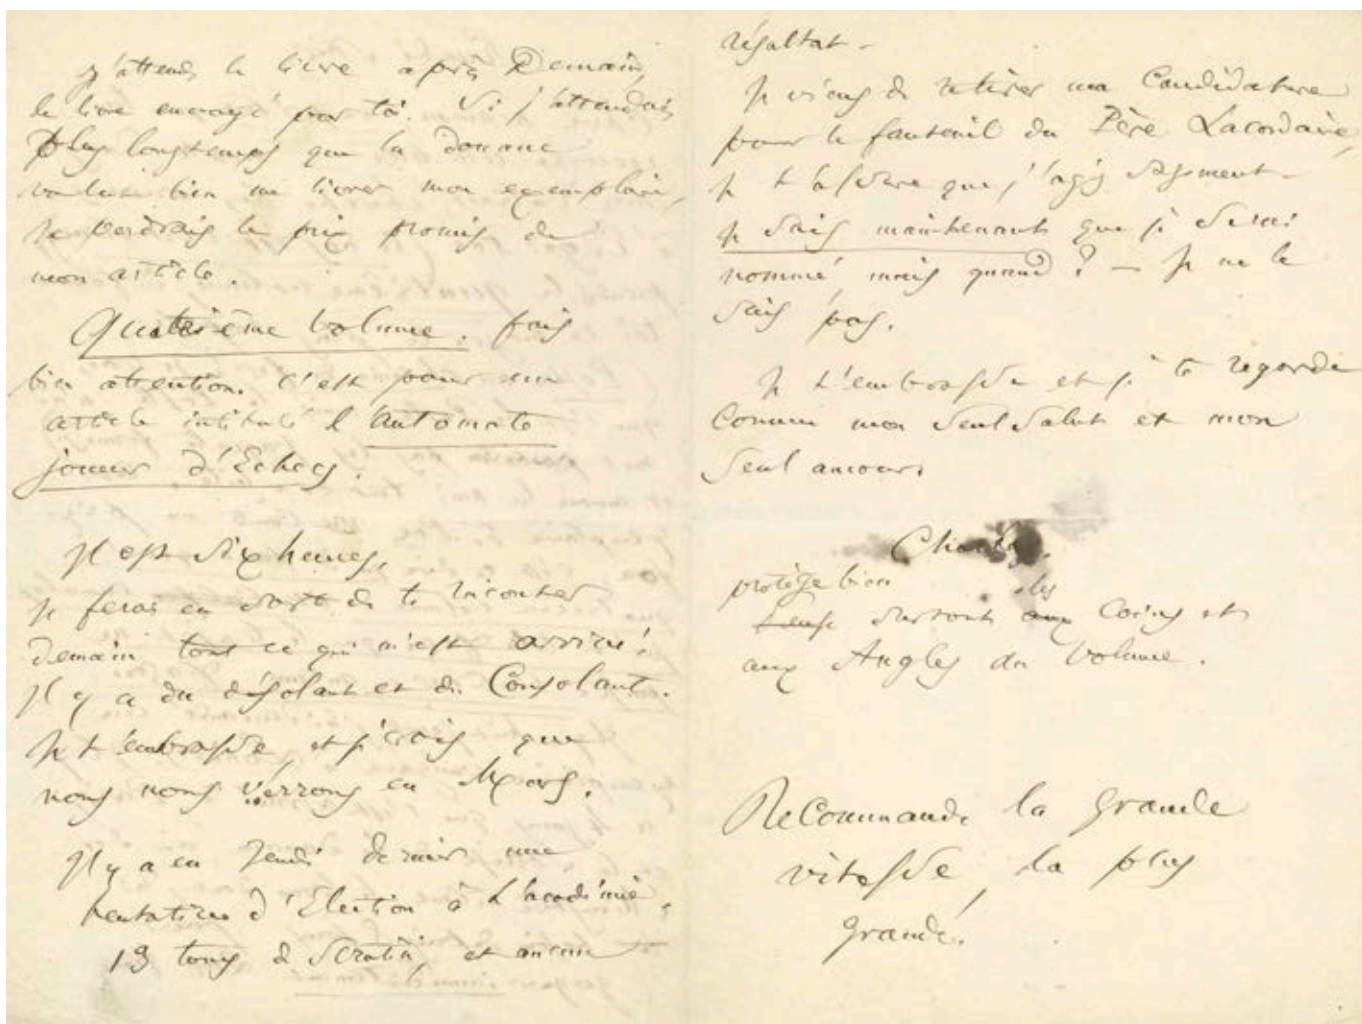 J'attends le livre après Demain,
le livre envoyé par toi. Si j'attendais
Plus longtemps que la Douane
voulût bien me livrer mon exemplaire,
je perdrais le prix promis de
mon article.
Quatrième Volume. fais
bien attention. C'est pour un
article intitulé l'automate
joueur d'Echecs.
Il est Six heures.
Je ferai en sorte de te raconter
Demain tout ce qui m'est arrivé.
Il y a du désolant et du Consolant.
Je t'embrasse, et je crois que
nous nous verrons en Mars.
Il y a eu Jeudi dernier une
tentative d'Election à L'académie.
13 tours de Scrutin, et aucun
résultat –
Je viens de retirer ma Candidature
pour le fauteuil du Père Lacordaire,
Je t'assure que j'agis sagement –
Je sais maintenant que je serai
nommé, mais quand ? – Je ne le
sais pas.
Je t'embrasse et je te regarde
Comme mon Seul Salut et mon
Seul amour.
Charles.
protège bien
surtout les Coins et
aux Angles du Volume.
Recommande la grande
vitesse, la plus
grande.